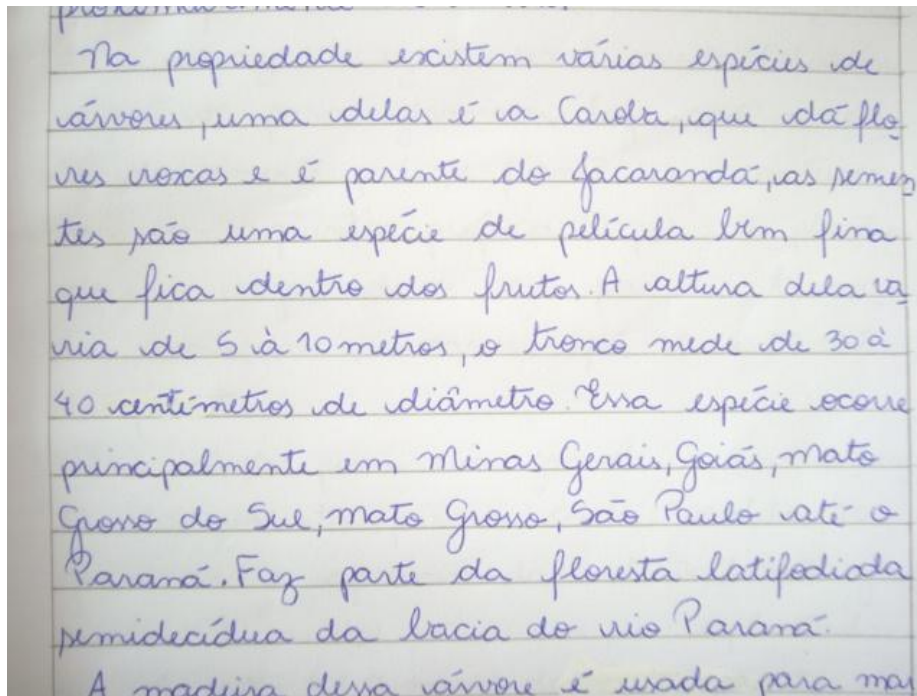 Na propriedade existem várias espécies de
árvores, uma delas é a Caroba, que dá flo
res roxas e é parente do Jacarandá, as semen
tes são uma espécie de película bem fina
que fica dentro dos frutos. A altura dela va
ria de 5 à 10 metros, o tronco mede de 30 à
40 centímetros de diâmetro. Essa espécie ocorre
principalmente em Minas Gerais, Goiás, mato
Grosso do Sul, mato Grosso, São Paulo até o
Paraná. Faz parte da floresta latifodiada
semidecídua da bacia do rio Paraná.
A madeira dessa árvore é usada para mar